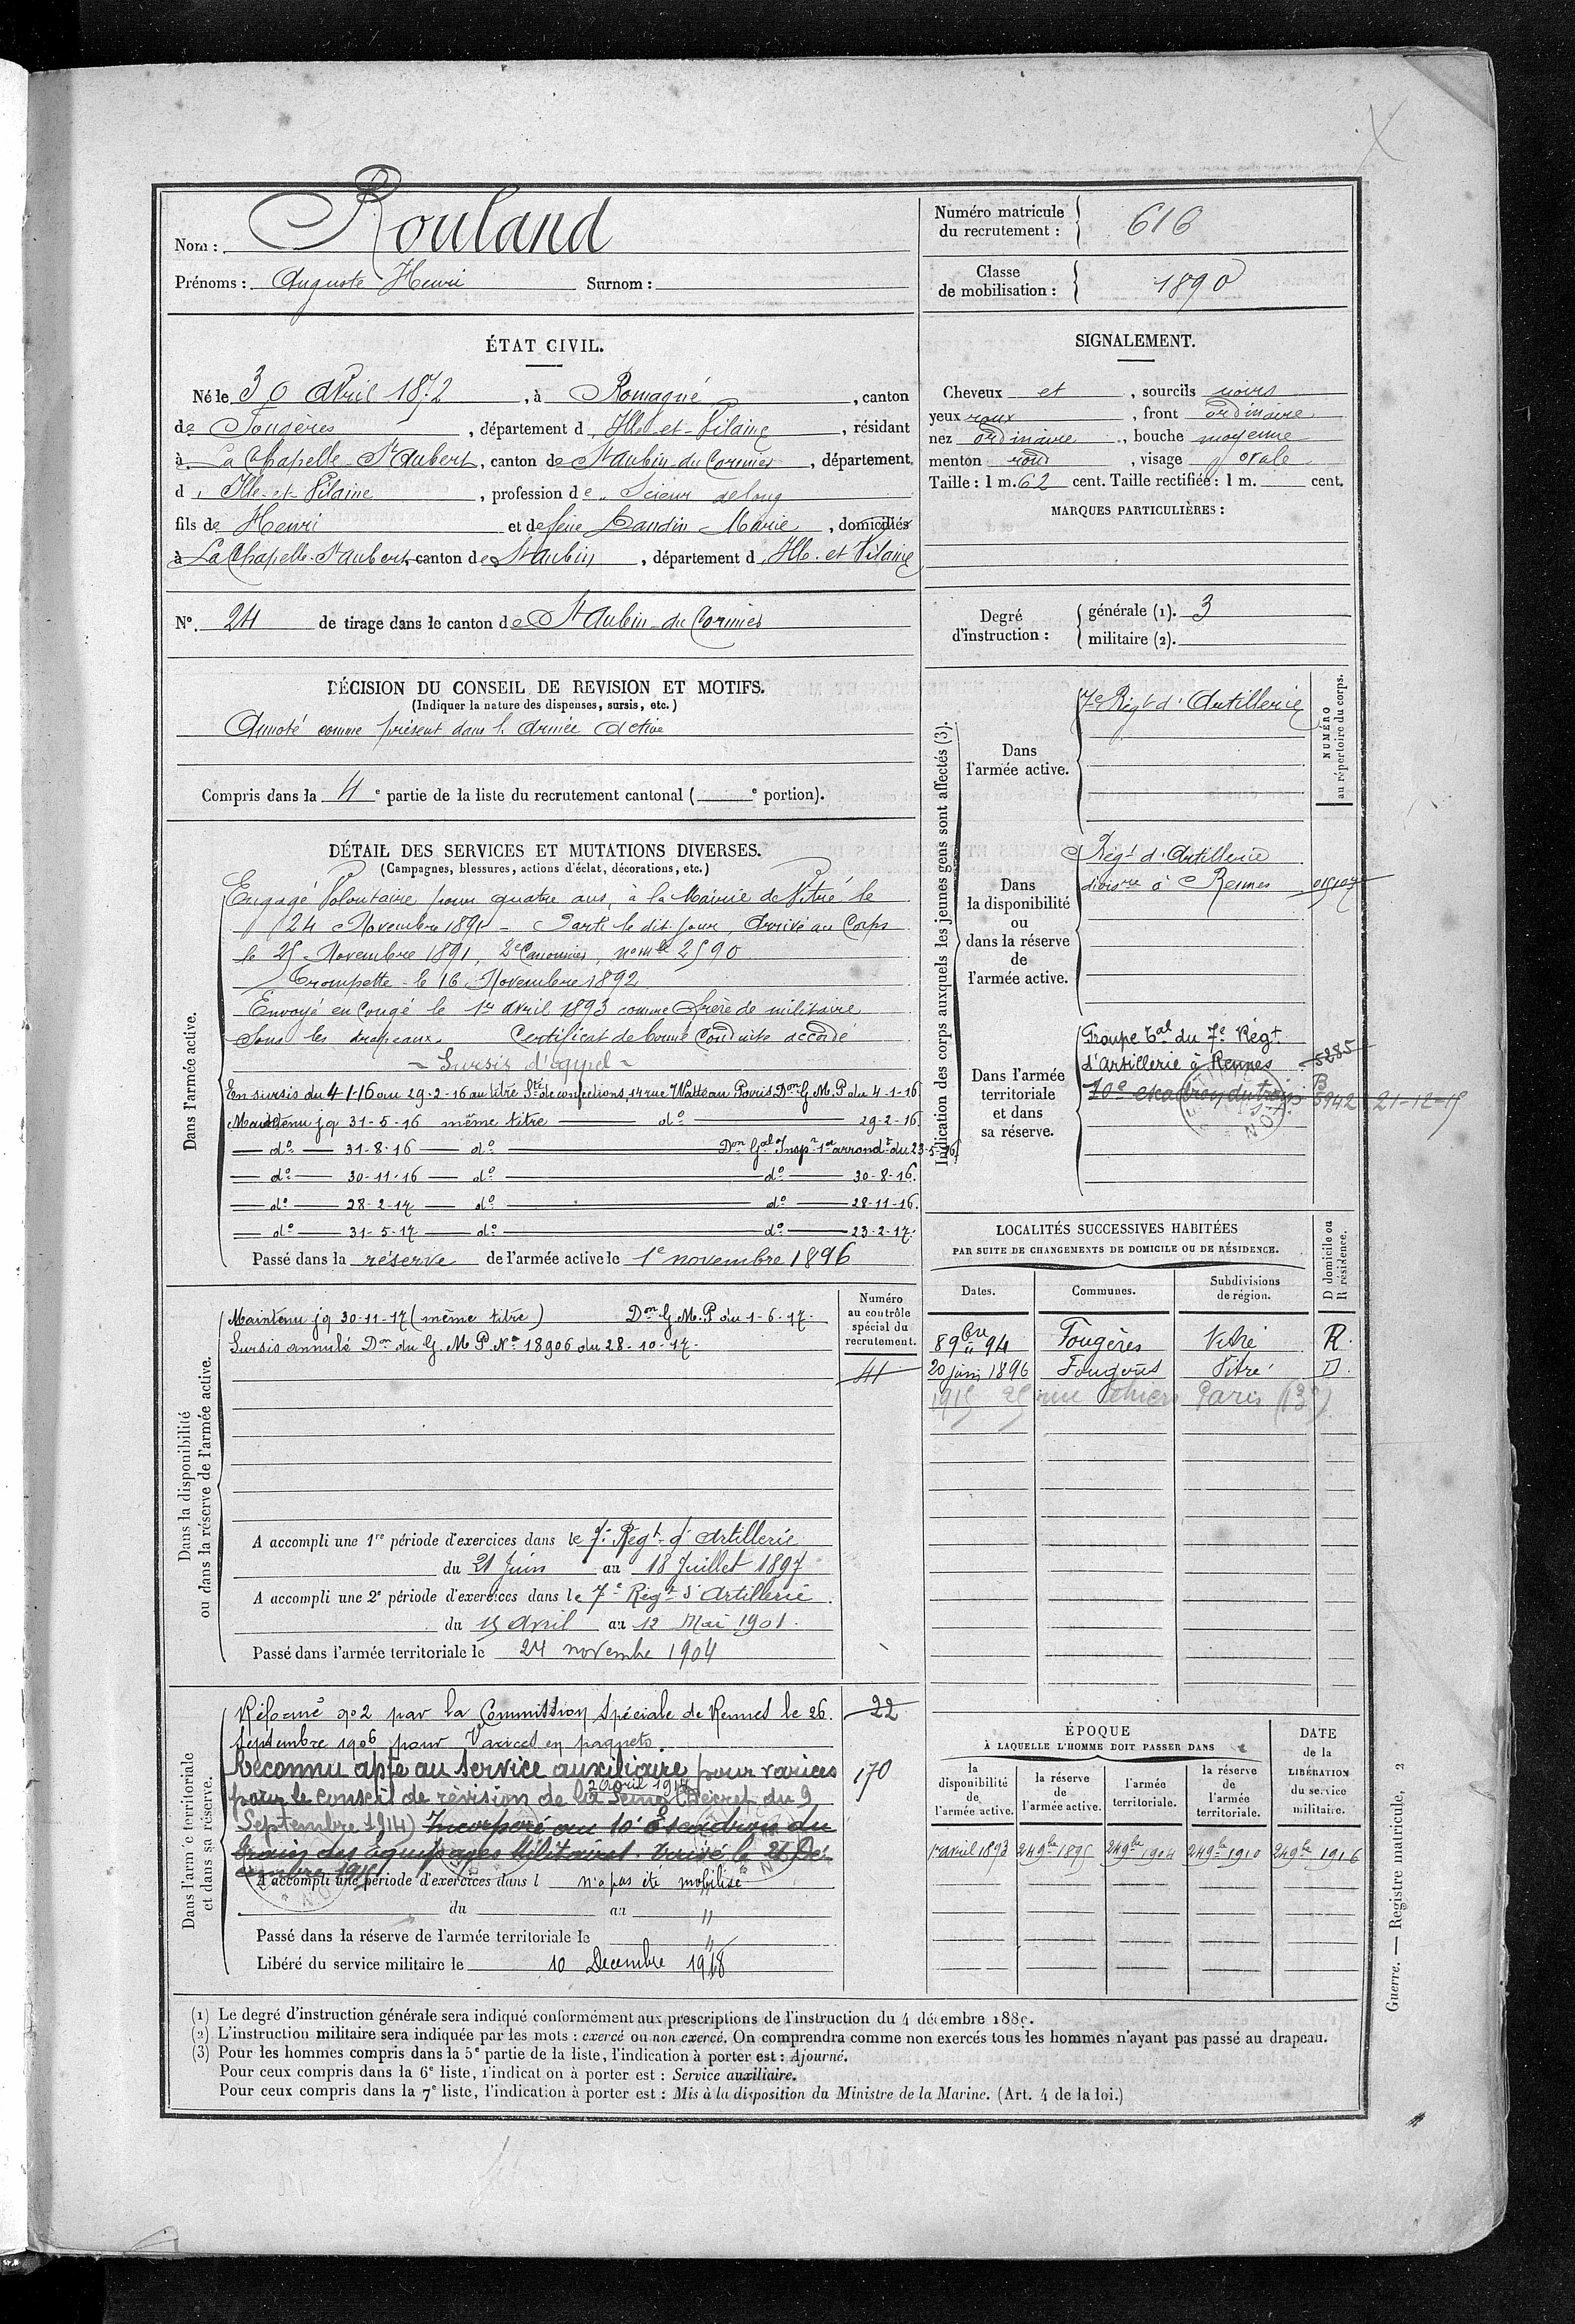 Nom : Rouland
Prénoms : Auguste Henri Surnom :
Numéro matricule du recrutement : 616
Classe de mobilisation : 1890
ÉTAT CIVIL.
Né le 30 Avril 1872, à Romagné, canton
de Fougères, département d'Ille-et-Vilaine, résidant
à La Chapelle-St Aubert, canton de St Aubin-du Cormier, département
d'Ille-et-Vilaine, profession de Scieur de long
fils de Henri et de feue Baudin Marie, domiciliés
à La Chapelle-St Aubert, canton de St Aubin, département d'Ille-et-Vilaine
N° 24 de tirage dans le canton de St Aubin-du Cormier
SIGNALEMENT.
Cheveux et, sourcils noirs
yeux roux, front ordinaire
nez ordinaire, bouche moyenne
menton rond, visage ovale
Taille : 1 m. 62 cent. Taille rectifiée : 1 m. cent.
MARQUES PARTICULIÈRES :
Degré d'instruction : générale (1). 3
militaire (2).
DÉCISION DU CONSEIL DE REVISION ET MOTIFS.
(Indiquer la nature des dispenses, sursis, etc.)
Annoté comme présent dans l'armée active
Compris dans la 4e partie de la liste du recrutement cantonal ( e portion).
DÉTAIL DES SERVICES ET MUTATIONS DIVERSES.
(Campagnes, blessures, actions d'éclat, décorations, etc.)
Dans l'armée active.
Engagé Volontaire pour quatre ans, à la Mairie de Vitré le
24 Novembre 1891 - Parti le dit jour, Arrivé au Corps
le 25 Novembre 1891, 2e Canonnier, No mle 2590
Trompette le 16 Novembre 1892
Envoyé en Congé le 1er Avril 1893 comme frère de militaire
sous les drapeaux. Certificat de bonne Conduite accordé
- Sursis d'appel -
En sursis du 4-1-16 au 29-2-16 au titre Sté de confections, 14 rue Watteau Paris Don G. M. P du 4-1-16
Maintenu jq 31-5-16 même titre do 29-2-16
do 31-8-16 do Don Gal Insp 1er arrondt du 23-5-16
do 30-11-16 do do 30-8-16.
do 28-2-17 do do 28-11-16.
do 31-5-17 do do 23-2-17.
Passé dans la réserve de l'armée active le 1e novembre 1896
Indication des corps auxquels les jeunes gens sont affectés (3).
NUMÉRO au répertoire du corps.
Dans l'armée active.
7e Rég't d'Artillerie
Dans la disponibilité ou dans la réserve de l'armée active.
Rég't d'Artillerie
divisre à Rennes
Dans l'armée territoriale et dans sa réserve.
Groupe Tal du 7e Régt
d'Artillerie à Rennes 5285
10e escadron du train B 5942 21-12-15
LOCALITÉS SUCCESSIVES HABITÉES
PAR SUITE DE CHANGEMENTS DE DOMICILE OU DE RÉSIDENCE.
Dates. Communes. Subdivisions de région. D domicile ou R résidence.
8 9bre 94 Fougères Vitré R.
20 juin 1896 Fougères Vitré D.
1915 25 rue Thiers Paris (13e)
Dans la disponibilité ou dans la réserve de l'armée active.
Numéro au contrôle spécial du recrutement.
Maintenu jq 30-11-17 (même titre) Don G. M. P du 1-6-17.
Sursis annulé Don du G. M. P. No 18906 du 28-10-17.
41
A accompli une 1re période d'exercices dans le 7e Régt d'Artillerie
du 21 Juin au 18 Juillet 1897
A accompli une 2e période d'exercices dans le 7e Régt d'Artillerie
du 15 Avril au 12 Mai 1901.
Passé dans l'armée territoriale le 24 novembre 1904
Dans l'armée territoriale et dans sa réserve.
Réformé no 2 par la Commission Spéciale de Rennes le 26 22
Septembre 1906 pour Varices en paquets.
Reconnu apte au service auxiliaire pour varices 170
par le conseil de révision de la Seine (Décret du 9
Septembre 1914) Incorporé au 10e Escadron du
train des Équipages Militaires. Arrivé le 21 Dé-
cembre 1915.
A accompli une période d'exercices dans l n'a pas été mobilisé
du au "
Passé dans la réserve de l'armée territoriale le "
Libéré du service militaire le 10 Décembre 1918
ÉPOQUE
À LAQUELLE L'HOMME DOIT PASSER DANS
la disponibilité de l'armée active. la réserve de l'armée active. l'armée territoriale. la réserve de l'armée territoriale.
DATE de la LIBÉRATION du service militaire.
1er avril 1893 24 9bre 1895 24 9bre 1904 24 9bre 1910 24 9bre 1916
(1) Le degré d'instruction générale sera indiqué conformément aux prescriptions de l'instruction du 4 décembre 1889.
(2) L'instruction militaire sera indiquée par les mots : exercé ou non exercé. On comprendra comme non exercés tous les hommes n'ayant pas passé au drapeau.
(3) Pour les hommes compris dans la 5e partie de la liste, l'indication à porter est : Ajourné.
Pour ceux compris dans la 6e liste, l'indication à porter est : Service auxiliaire.
Pour ceux compris dans la 7e liste, l'indication à porter est : Mis à la disposition du Ministre de la Marine. (Art. 4 de la loi.)
Guerre. — Registre matricule, 2